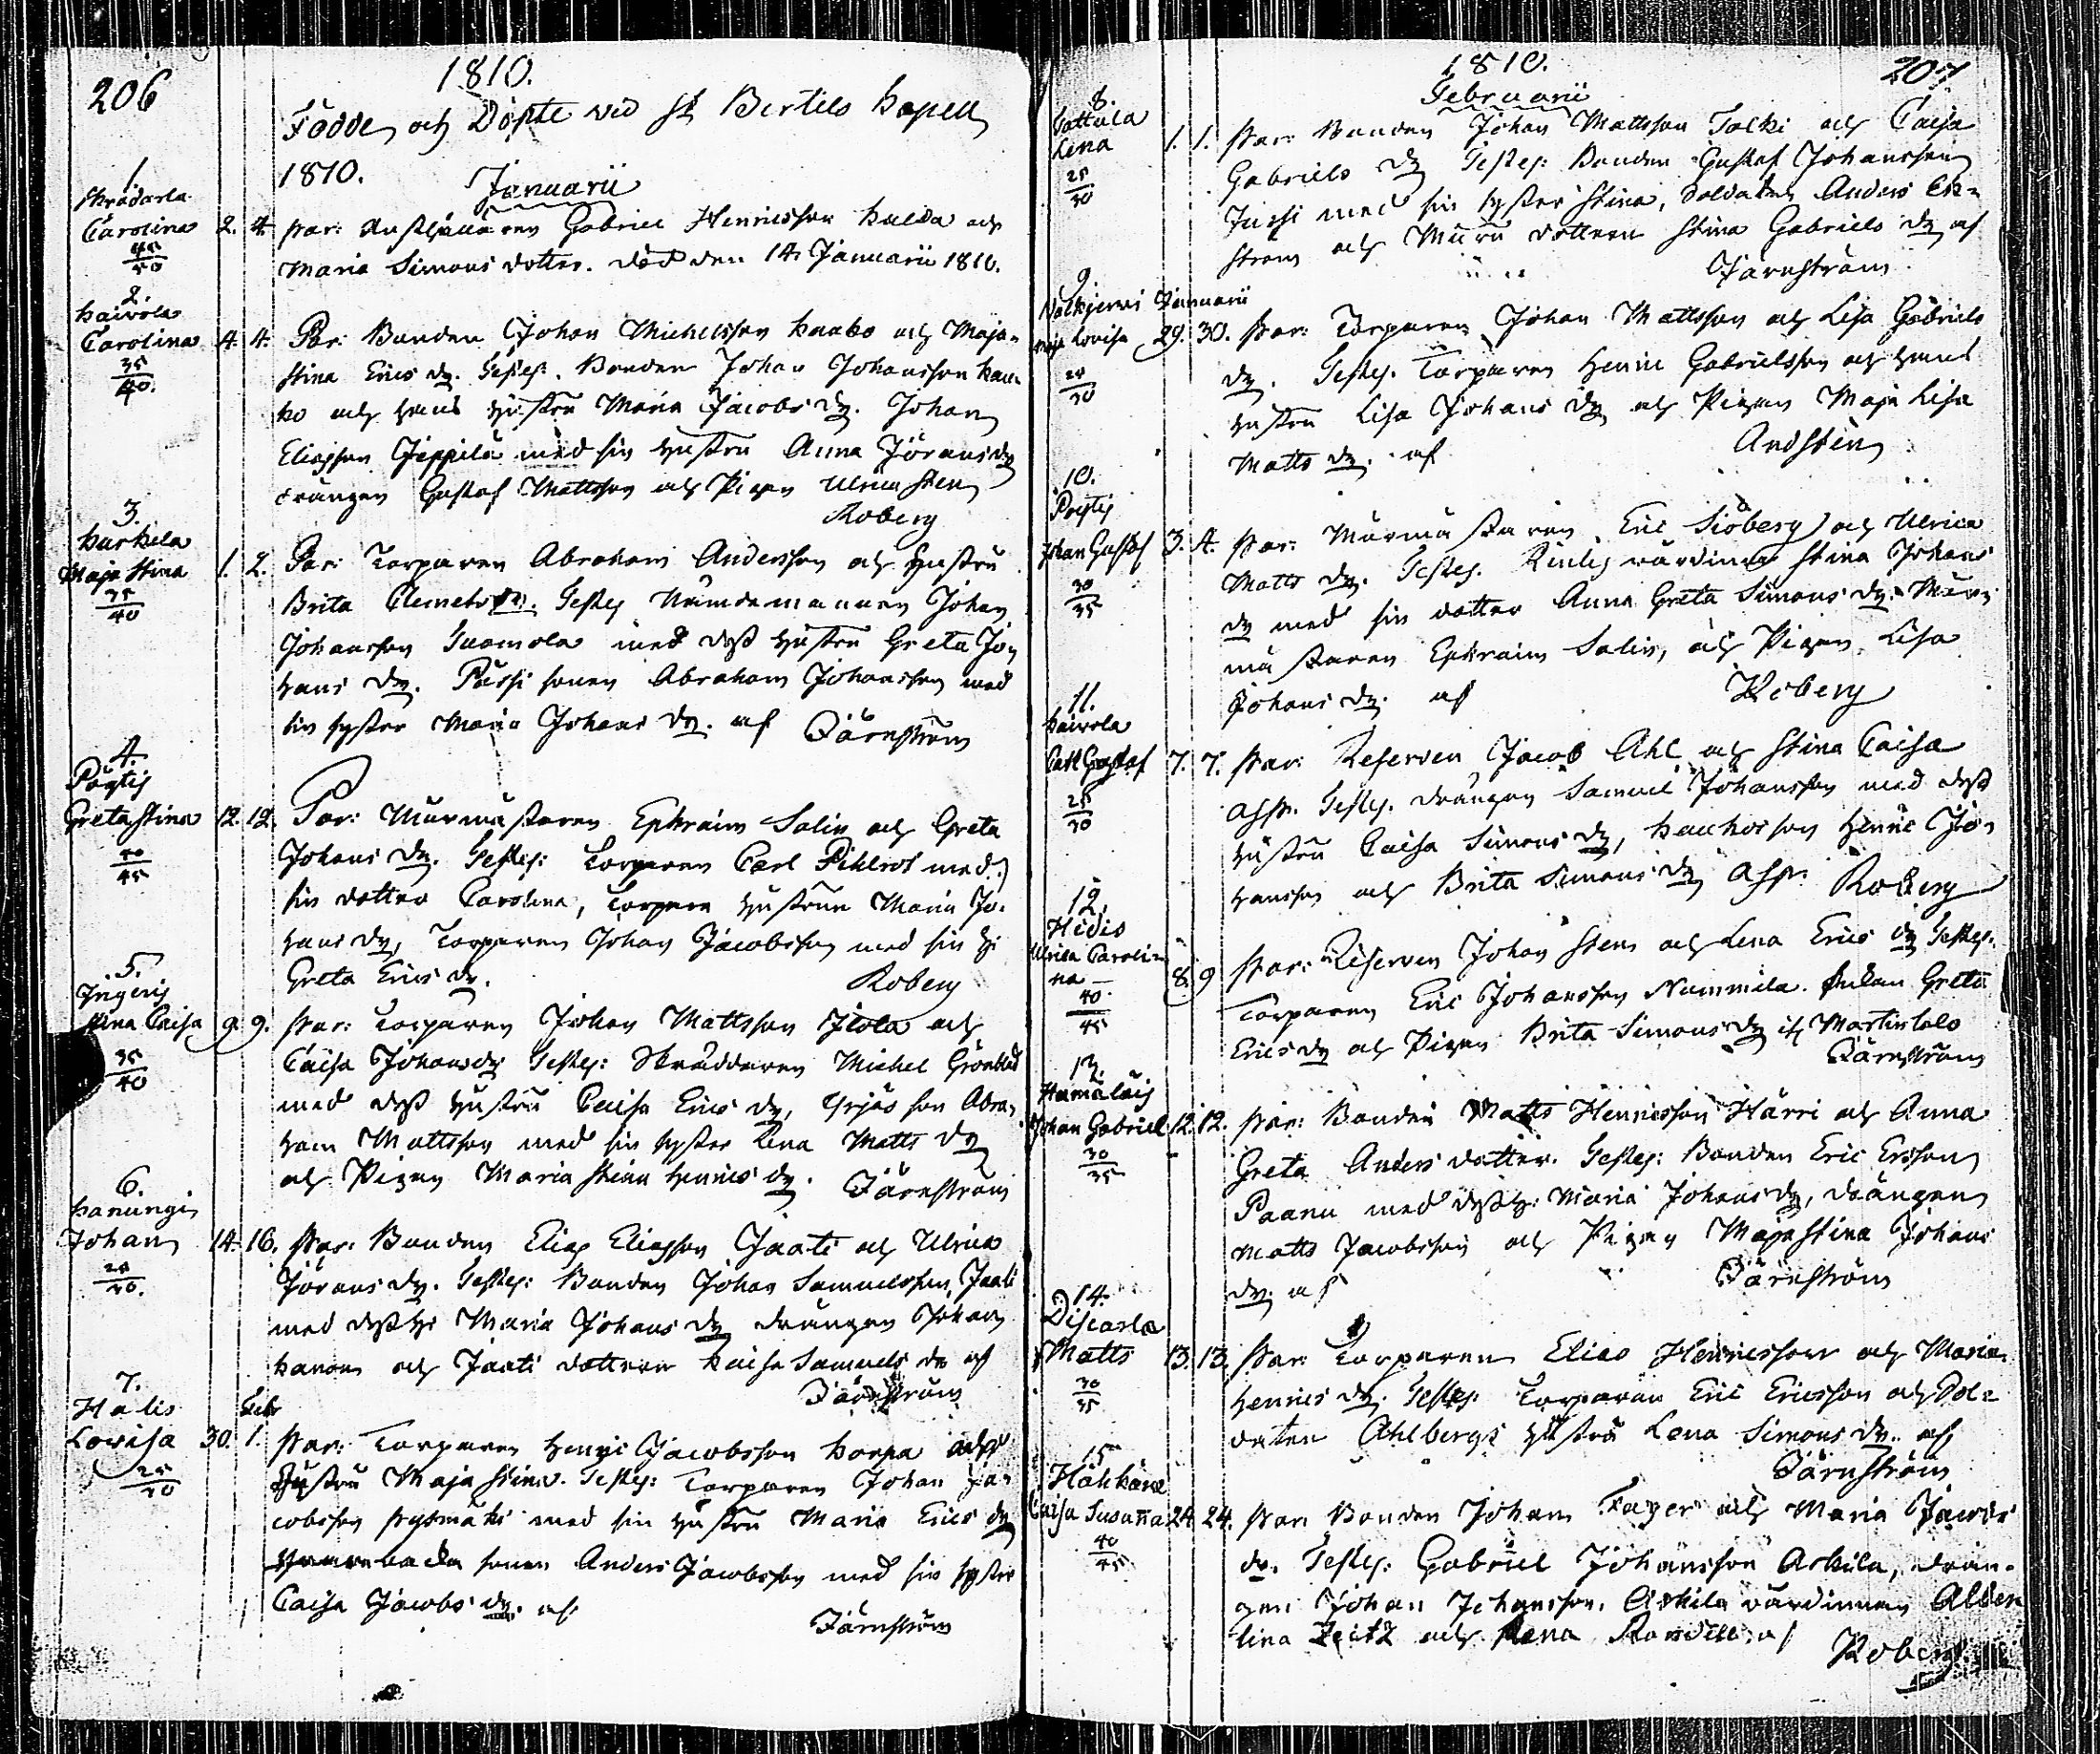 206
1810.
Födde och Döpte vid St Bertils Capell
1810.
Januarii
1.
Carolina 2. 4. Par: Gabriel Henricsson Kulda och
45/50
Maria Simons dotter. död den 14 Januarii 1810.
2.
Kaivola
Carolina 4. 4. Par: Bonden Johan Michelsson Kaako och Maja
35/40
Stina Erics dr. Testes: Bonden Johan Johansson Kaa-
ko och hans hustru Maria Jacobs dr. Johan
Eliasson Jeppilä med sin hustru Anna Jörans dr
drängen Gustaf Mattsson och Pigan Ulrica Sten
Roberg
3.
Kurkela
Maja Stina 1. 2. Par: Torparen Abraham Andersson och hustru
35/40
Brita Clemets dr. Testes Nämdemannen Johan
Johansson Suomola med dess hustru Greta Jo-
hans dr. Pässi sonen Abraham Johansson med
sin syster Maria Johans dr. af Färnström
4.
Pöytis
Greta Stina 12. 12. Par: Murmästaren Ephraim Salin och Greta
40/45
Johans dr. Testes: Torparen Carl Pihlrot med
sin dotter Carolina, Torpare hustrun Maria Jo-
hans dr, Torparen Johan Jacobsson med sin h:
Greta Erics dr. Roberg
5.
Yrjeris
Stina Caisa 9. 9. Par: Torparen Johan Mattsson Itola och
35/40
Caisa Johans dr Testes: Skräddaren Michel Grönblad
med dess hustru Caisa Erics dr, Yrjös son Abra-
ham Mattsson med sin syster Lena Matts dr
och Pigan Maria Stina Henrics dr. Färnström
6.
Kanungi
Johan 14. 16. Par: Bonden Elias Eliasson Jaati och Ulrica
Jörans dr. Testes: Bonden Johan Samuelsson Jaati
med dess h: Maria Johans dr drängen Johan
och Jaati dottren Kaisa Samuels dr af
Färnström
7.
Halis Febr
Lovisa 30. 1. Par: Torparen Henric Jacobsson Korpa och
25/30
hustru Maja Stina. Testes: Torparen Johan Ja-
cobsson med sin hustru Maria Erics dr
sonen Anders Jacobsson med sin syster
Caisa Jacobs dr. af
Färnström
1810. 207
Februarii
8.
Gottula
Lena 1. 1. Par: Bonden Johan Mattsson Talki och Caisa
25/30
Gabriels dr Testes: Bonden Gustaf Johansson
Jussi med sin syster Stina, Soldaten Anders Ek-
ström och Muru dottren Stina Gabriels dr af
Färnström
9.
Januarii
Maja Lovisa 29. 30. Par: Torparen Johan Mattsson och Lisa Gabriels
dr. Testes. Torparen Henric Gabrielsson och hans
hustru Lisa Johans dr och Pigan Maja Lisa
Matts dr. af Andstén
10.
Pöytis
Johan Gustaf 3. 4. Par: Murmästaren Eric Siöberg och Ulrica
30/35
Matts dr. Testes. värdinna Stina Johans
dr med sin dotter Anna Greta Simons dr. Mur-
mästaren Ephraim Salin, och Pigan Lisa
Johans dr. af Roberg
11.
Kaivola
Carl Gustaf 7. 7. Par: Reserven Jacob Ahl och Stina Caisa
25/30
Ass. Testes. drängen Samuel Johansson med dess
hustru Caisa Simons dr, son Henric Jo-
hansson och Brita Simons dr Ass. Roberg
12.
Hidis
Ulrica Caroli-
na 8. 9 Par: Reserven Johan Stens och Lena Erics dr Testes.
40/45
Torparen Eric Johansson Nummila. Enkan Greta
Erics dr och Pigan Brita Simons dr ifr Martintalo
Färnström
13.
Hämäläis
Johan Gabriel 12. 12. Par: Bonden Matts Henricsson Härri och Anna
30/35
Greta Anders dotter. Testes: Bonden Eric Ersson
Paanu med dess h: Maria Johans dr, drängen
Matts Jacobsson och Pigan Maja Stina Johans
dr. af Färnström
14.
Discarla
Matts 13. 13. Par: Torparen Elias Henricsson och Maria
30/35
Henrics dr. Testes: Torparen Eric Ericsson och Sol-
daten Ahlbergs hustru Lena Simons dr. af
Färnström
15
Caisa Susanna 24. 24. Par: Bonden Johan Fager och Maria Jacobs
40/45
dr. Testes: Gabriel Johansson Arkila, drän-
gen Johan Johansson. Arkila värdinnan Alber-
tina Zeitz och Lena af Roberg